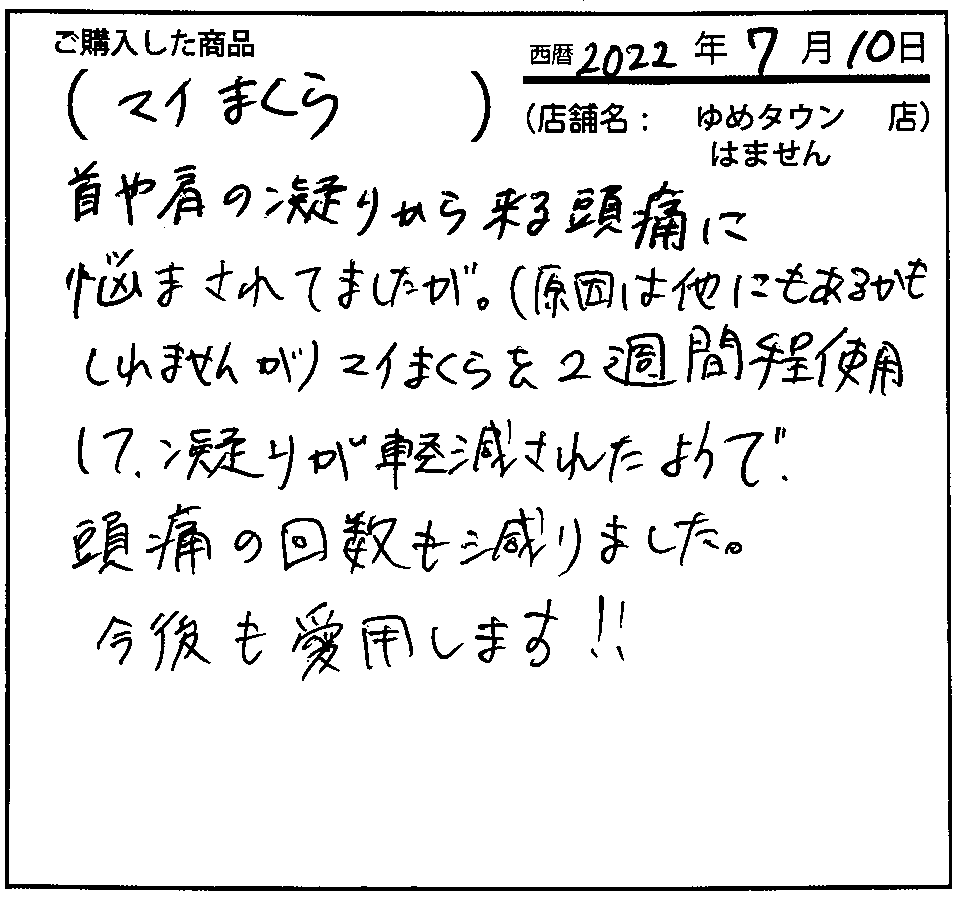 ご購入した商品
西暦2022年7月10日
(マイまくら)
(店舗名: ゆめタウン 店)
はません
首や肩の凝りから来る頭痛に
悩まされてましたが。(原因は他にもあるかも
しれませんが)マイまくらを2週間程使用
して、凝りが軽減されたようで、
頭痛の回数も減りました。
今後も愛用します!!